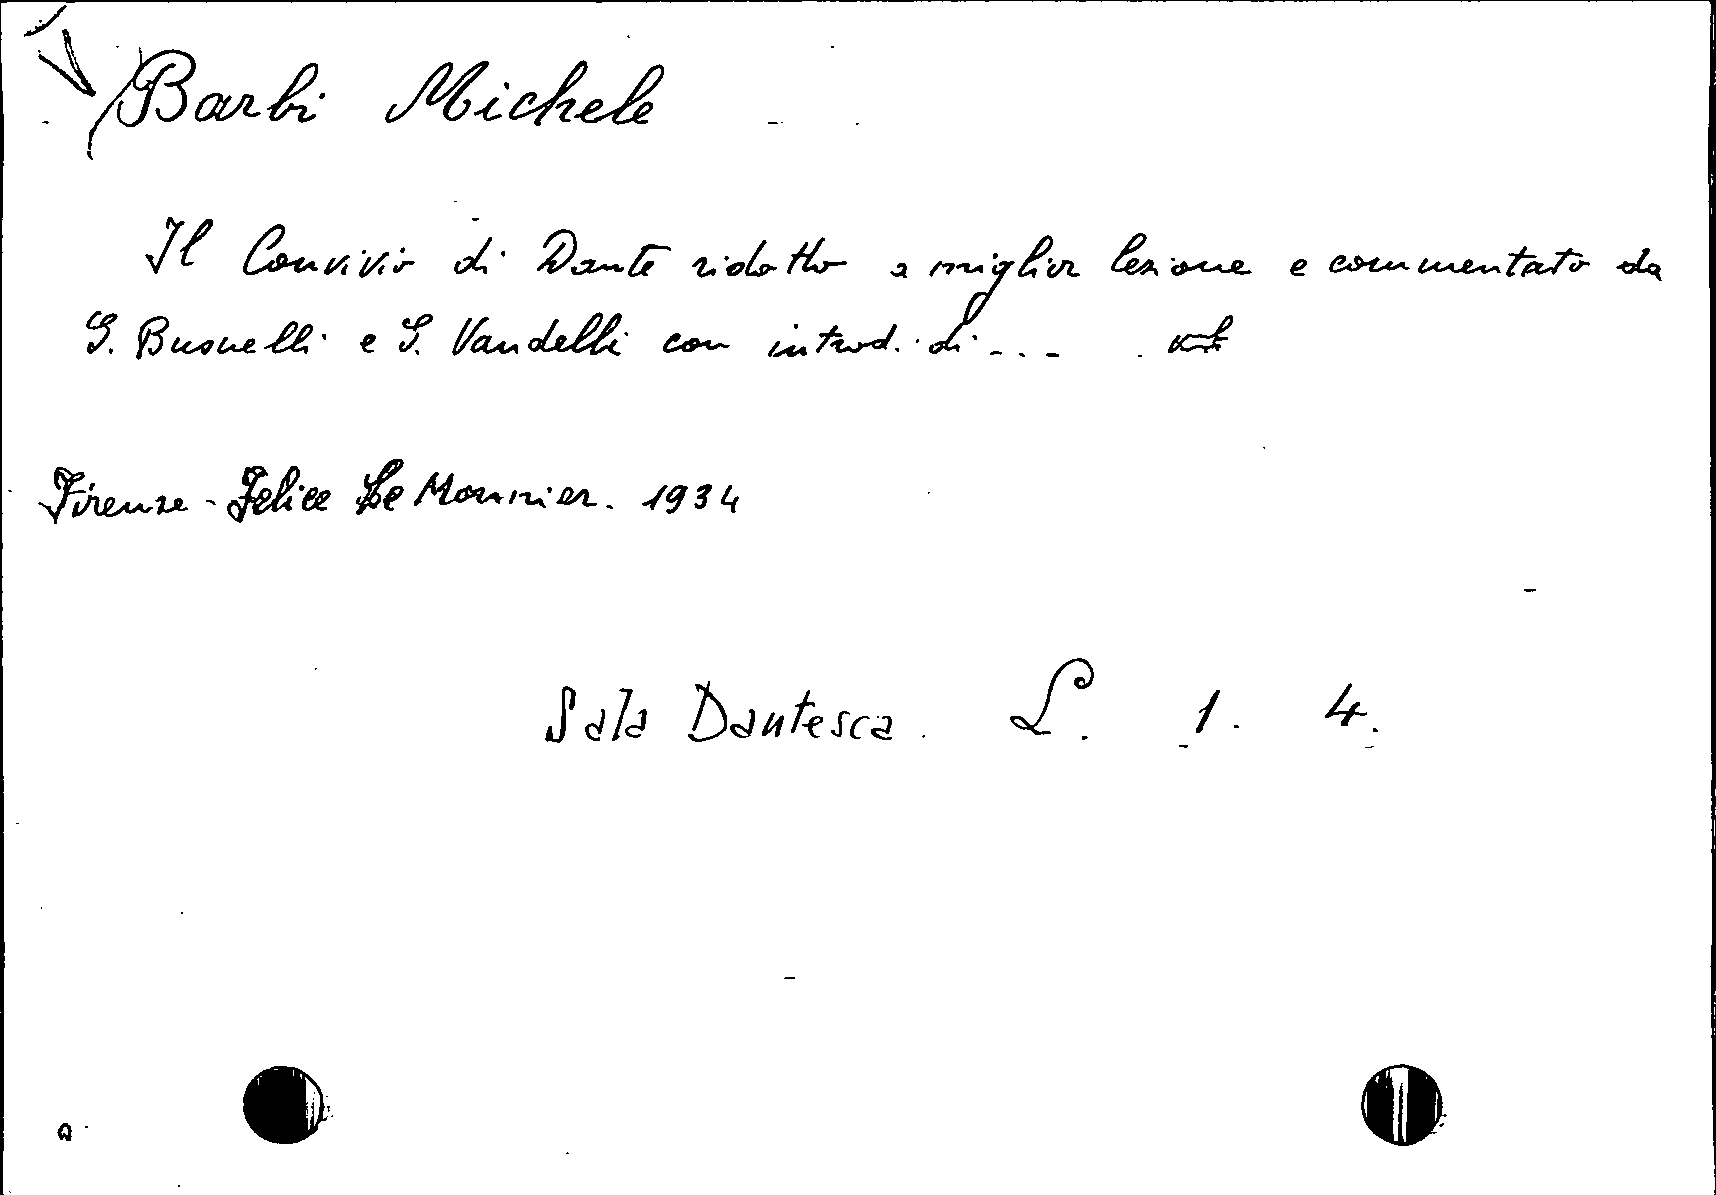 Barbi Michele
Il Convivio di Dante ridotto a miglior lezione e commentato da
G. Busnelli e G. Vandelli con introd. di ...
Firenze - Felice Le Monnier. 1934
Sala Dantesca. L. 1. 4.